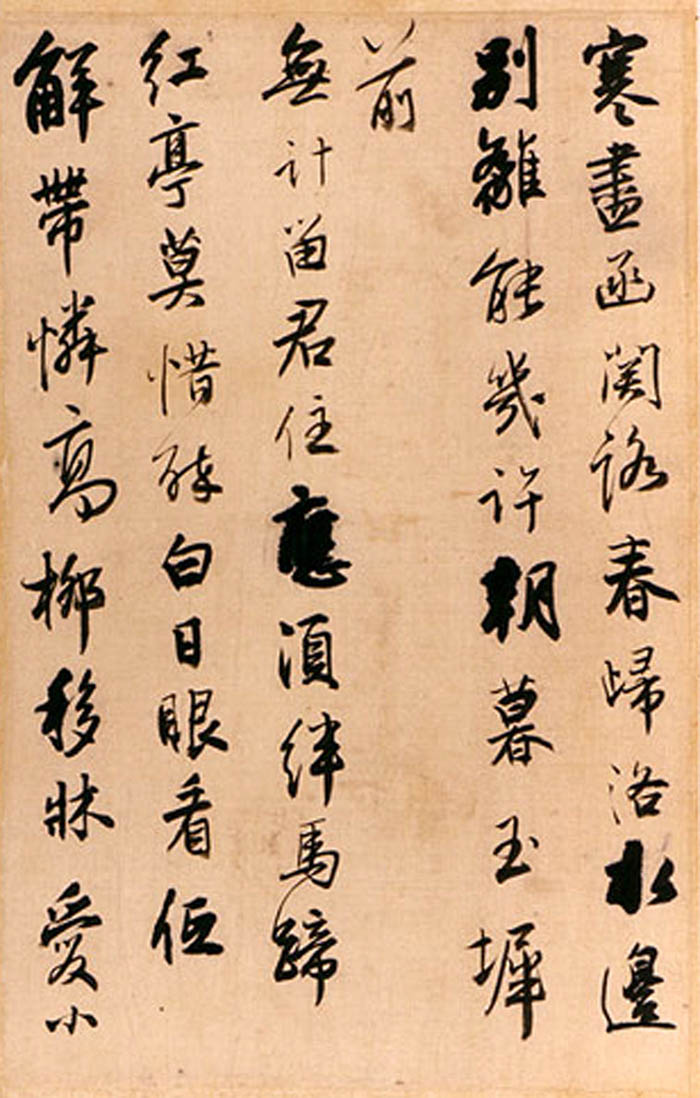 寒盡函関路春歸洛水邊
別離能幾許朝暮玉墀
前
無計留君住應須絆馬蹄
紅亭莫惜醉白日眼看低
解帶憐高柳移牀愛小